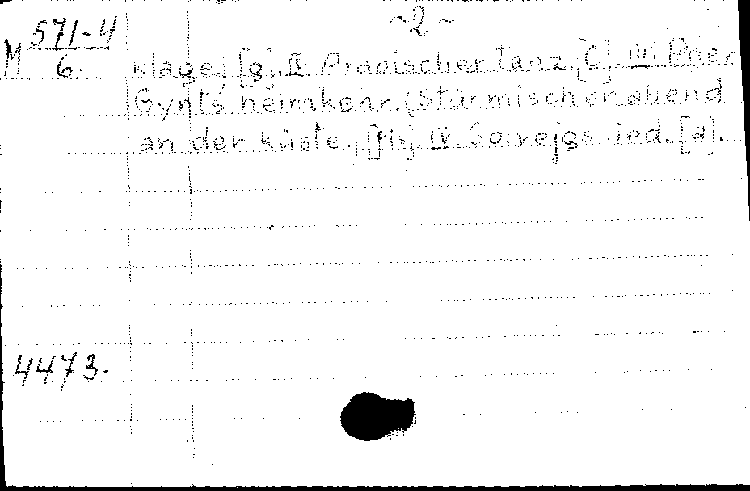 -2-
M 571-4
6.
Klage. [g]. II. Arabischer Tanz. [C]. III. Peer
Gynts Heimkehr. (Stürmischer Abend
an der Küste.) [fis]. IV. Solvejgs Lied. [a].
4473.